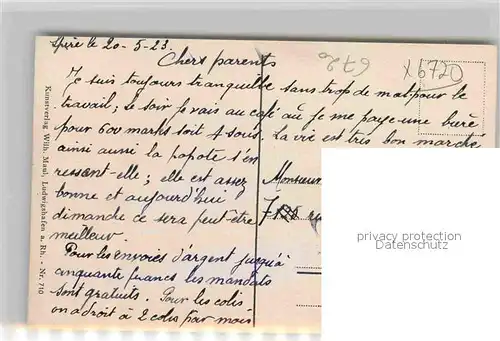 Spire le 20-5-23.
Chers parents
6720
X 6720
Je suis toujours tranquille sans trop de mal pour le
travail; le soir je vais au café où je me paye une
pour 600 marks soit 4 sous. La vie est très bon marché
ainsi aussi la popote s'en
ressent-elle; elle est assez
bonne et aujourd'hui
dimanche ce sera peut-être
meilleur.
Pour les envoies d'argent jusqu'à
cinquante francs les mandats
sont gratuits. Pour les colis
on a droit à 2 colis par mois
Monsieur
Kunstverlag Wilh. Maul, Ludwigshafen a. Rh. - Nr. 710
privacy protection
Datenschutz